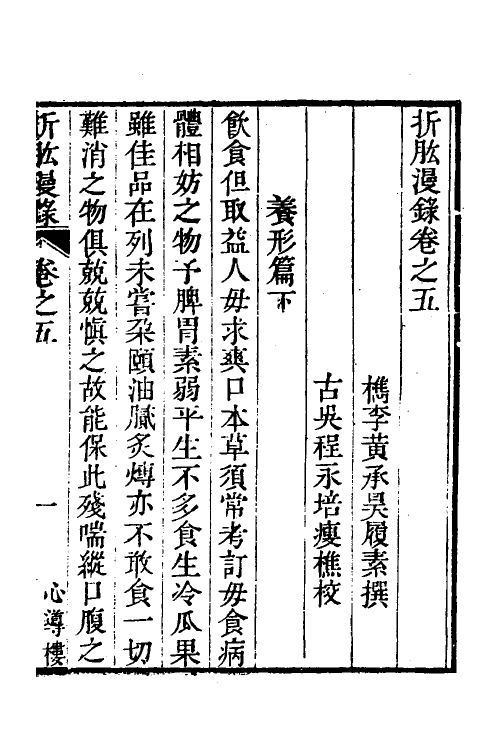 折肱漫錄卷之五
檇李黃承昊履素撰
古吳程永培瘦樵校
養形篇下
飲食但取益人毋求爽口本草須常考訂毋食病
體相妨之物予脾胃素弱平生不多食生冷瓜果
雖佳品在列未嘗朶頤油膩炙煿亦不敢食一切
難消之物俱兢兢愼之故能保此殘喘縱口腹之
折肱漫錄 卷之五 一 心導樓